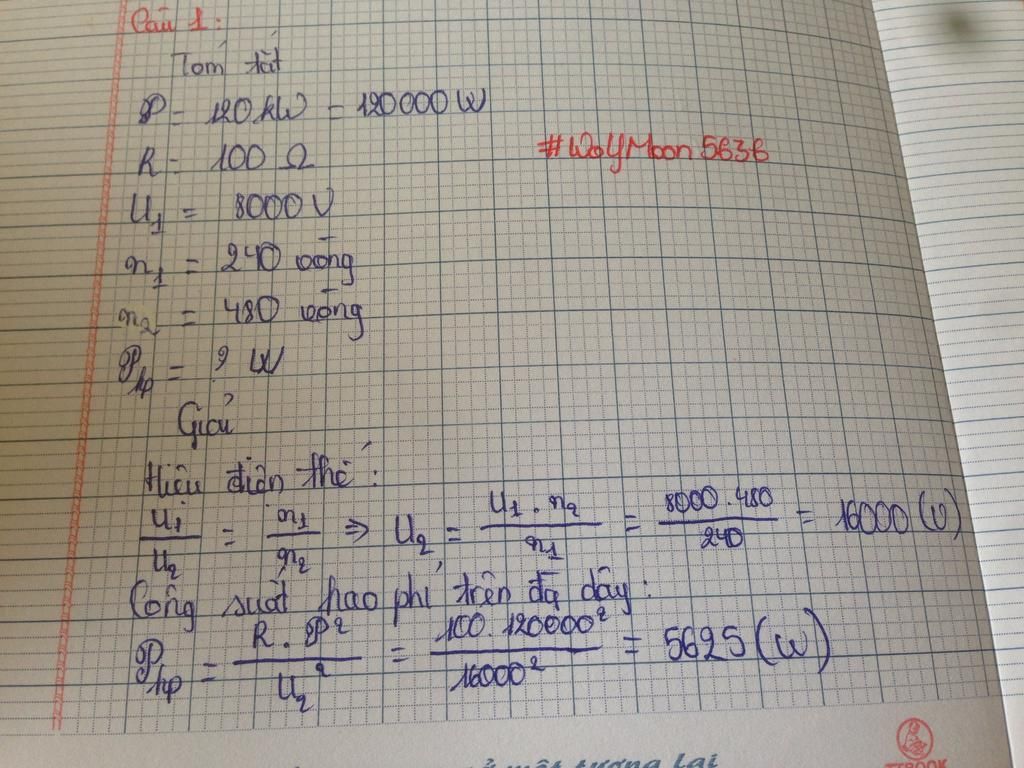 Câu 1:
Tóm tắt
P = 120 kW = 120000 W
R = 100 Ω
#WolfMoon5636
U₁ = 8000 V
n₁ = 240 vòng
n₂ = 480 vòng
P_hp = ? W
Giải
Hiệu điện thế:
U₁/U₂ = n₁/n₂ ⇒ U₂ = U₁.n₂/n₁ = 8000.480/240 = 16000 (V)
Công suất hao phí trên đg dây:
P_hp = R.P²/U₂² = 100.120000²/16000² = 5625 (W)
tương lai